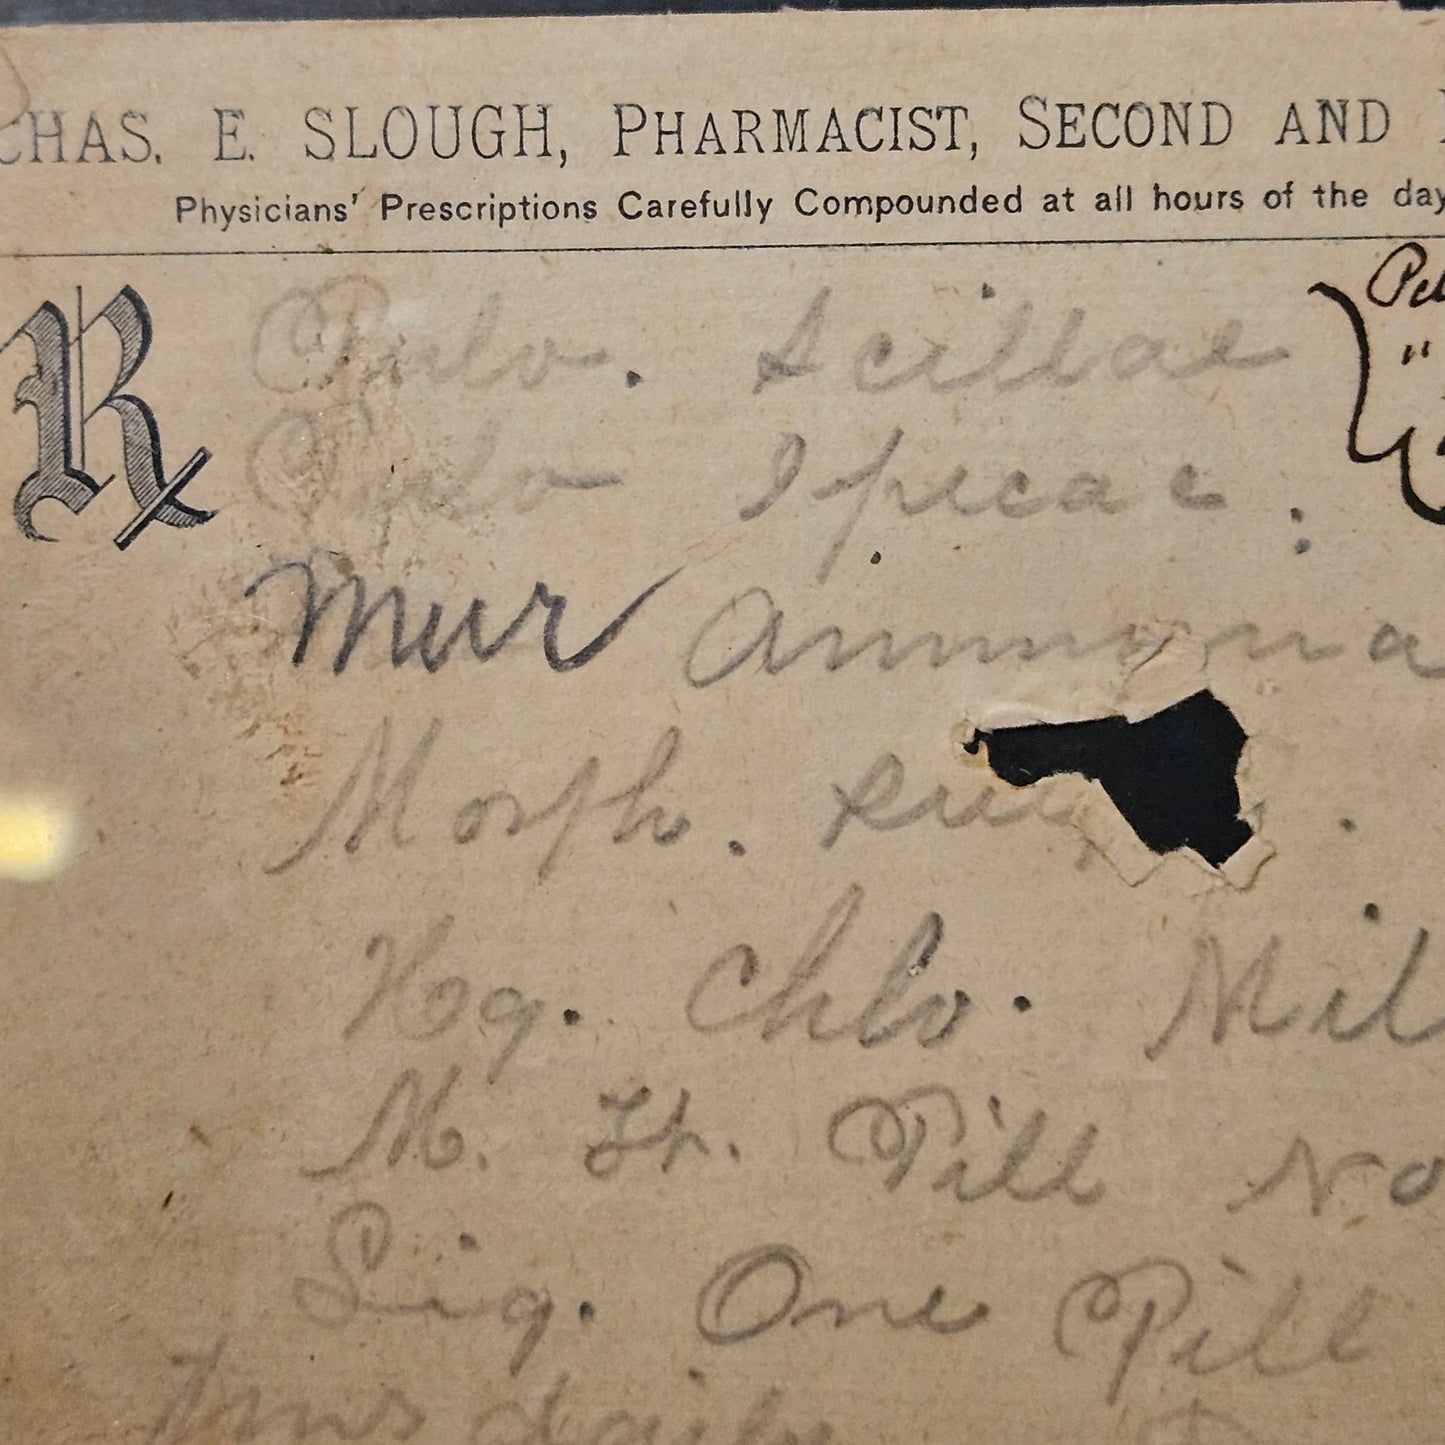 CHAS. E. SLOUGH, PHARMACIST, SECOND AND
Physicians' Prescriptions Carefully Compounded at all hours of the day
℞ Pulv. Scillae
Pulv Ipecac.
Mur Ammonia
Morph.
Hyg. Chlo. Mil
M. Ft. Pill No
Sig. One Pill
daily